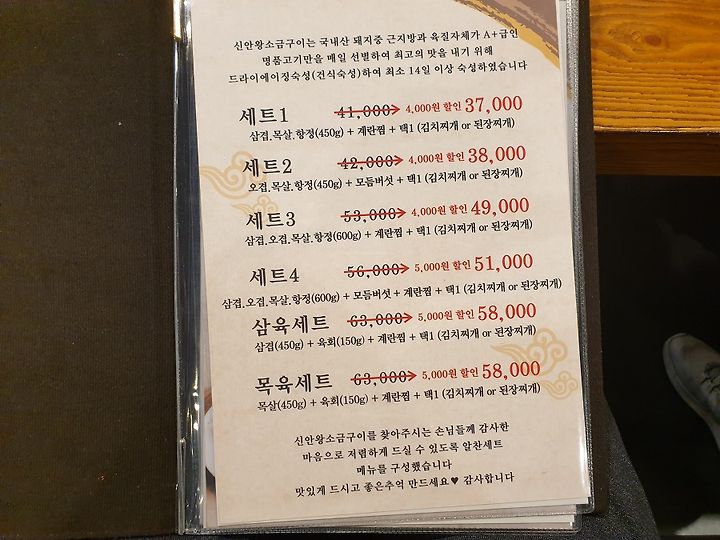 신안왕소금구이는 국내산 돼지중 근지방과 육질자체가 A+급인
명품고기만을 매일 선별하여 최고의 맛을 내기 위해
드라이에이징숙성(건식숙성)하여 최소 14일 이상 숙성하였습니다
세트1 41,000 4,000원 할인 37,000
삼겹.목살.항정(450g) + 계란찜 + 택1 (김치찌개 or 된장찌개)
세트2 42,000 4,000원 할인 38,000
오겹.목살.항정(450g) + 모듬버섯 + 택1 (김치찌개 or 된장찌개)
세트3 53,000 4,000원 할인 49,000
삼겹.오겹.목살.항정(600g) + 계란찜 + 택1 (김치찌개 or 된장찌개)
세트4 56,000 5,000원 할인 51,000
삼겹.오겹.목살.항정(600g) + 모듬버섯 + 계란찜 + 택1 (김치찌개 or 된장찌개)
삼육세트 63,000 5,000원 할인 58,000
삼겹(450g) + 육회(150g) + 계란찜 + 택1 (김치찌개 or 된장찌개)
목육세트 63,000 5,000원 할인 58,000
목살(450g) + 육회(150g) + 계란찜 + 택1 (김치찌개 or 된장찌개)
신안왕소금구이를 찾아주시는 손님들께 감사한
마음으로 저렴하게 드실 수 있도록 알찬세트
메뉴를 구성했습니다
맛있게 드시고 좋은추억 만드세요♥ 감사합니다